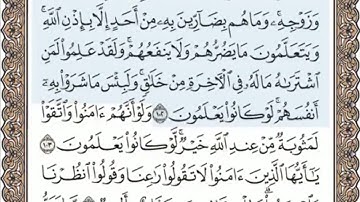 وَزَوْجِهِۦ وَمَا هُم بِضَآرِّينَ بِهِۦ مِنْ أَحَدٍ إِلَّا بِإِذْنِ ٱللَّهِ
وَيَتَعَلَّمُونَ مَا يَضُرُّهُمْ وَلَا يَنفَعُهُمْ وَلَقَدْ عَلِمُوا۟ لَمَنِ
ٱشْتَرَىٰهُ مَا لَهُۥ فِى ٱلْـَٔاخِرَةِ مِنْ خَلَـٰقٍ وَلَبِئْسَ مَا شَرَوْا۟ بِهِۦٓ
أَنفُسَهُمْ لَوْ كَانُوا۟ يَعْلَمُونَ ١٠٢ وَلَوْ أَنَّهُمْ ءَامَنُوا۟ وَٱتَّقَوْا۟
لَمَثُوبَةٌ مِّنْ عِندِ ٱللَّهِ خَيْرٌ لَّوْ كَانُوا۟ يَعْلَمُونَ ١٠٣
يَـٰٓأَيُّهَا ٱلَّذِينَ ءَامَنُوا۟ لَا تَقُولُوا۟ رَٰعِنَا وَقُولُوا۟ ٱنظُرْنَا